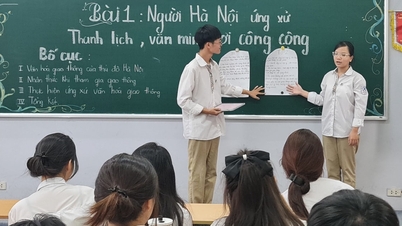 Bài 1: Người Hà Nội ứng xử
Thanh lịch, văn minh nơi công cộng
Bố cục:
I Văn hoá giao thông của thủ đô Hà Nội
II Nhận thức khi tham gia giao thông
III Thực hiện ứng xử văn hoá giao thông
IV Tổng kết